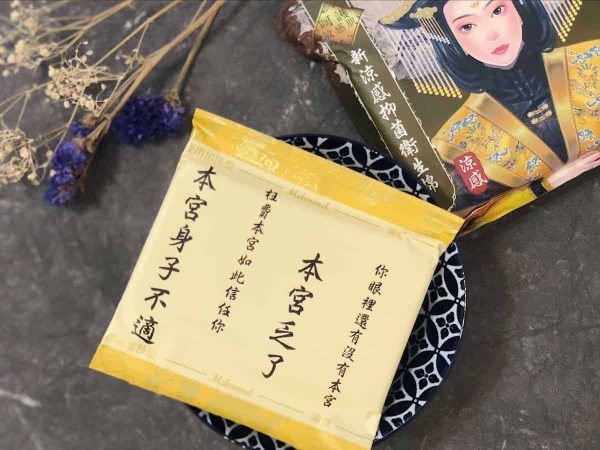 新涼感抑菌衛生棉
涼感
你眼裡還有沒有本宮
本宮乏了
枉費本宮如此信任你
本宮身子不適
Mdmmd.
Mdmmd.